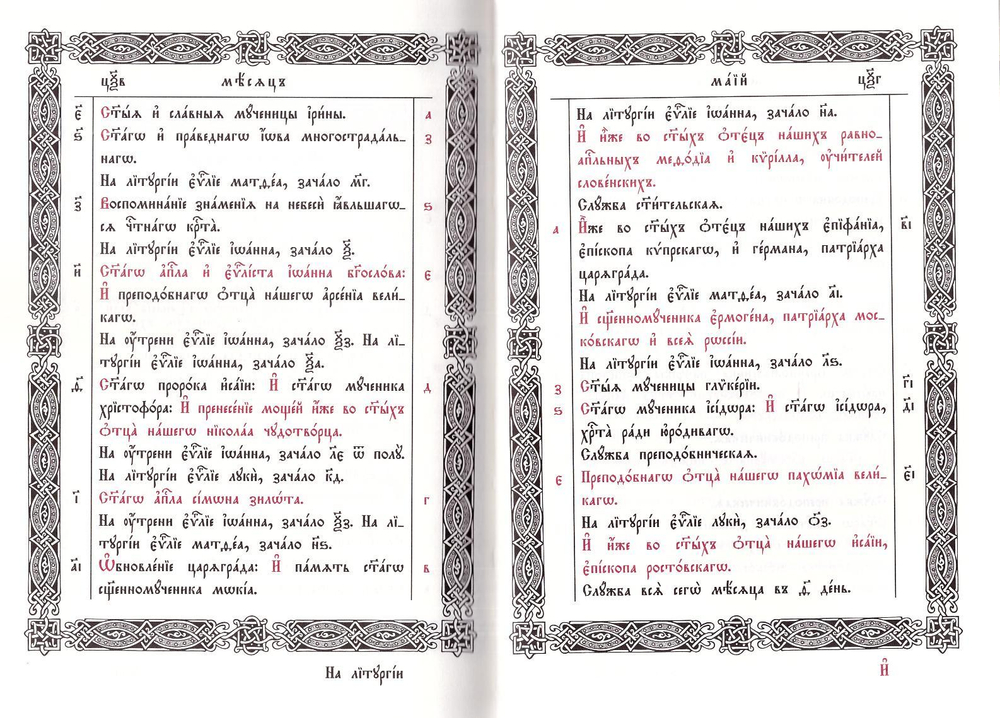 цч҃в мѣ́сяцъ
є҃ Ст҃ы́ѧ и҆ сла́вныѧ мч҃нцы і҆рі́ны. а
ѕ҃ Ст҃а́гѡ и҆ пра́веднагѡ і҆́ѡва многострада́ль- з
нагѡ.
На лїтꙋргі́и є҆ѵⷢ҇лїе матѳе́а, зача́ло м҃г.
з҃ Воспомина́нїе зна́менїѧ на небесѝ ꙗ҆́вльшагѡ- ѕ
сѧ чⷭ҇тна́гѡ крⷭ҇та̀.
На лїтꙋргі́и є҆ѵⷢ҇лїе і҆ѡа́нна, зача́ло ѯ҃.
и҃ Ст҃а́гѡ а҆пⷭ҇ла и҆ є҆ѵⷢ҇лі́ста і҆ѡа́нна бг҃осло́ва: є
И҆ преподо́бнагѡ ѻ҆тца̀ на́шегѡ а҆рсе́нїа вели́-
кагѡ.
На ᲂу҆́трени є҆ѵⷢ҇лїе і҆ѡа́нна, зача́ло ѯ҃з. На лї-
тꙋргі́и є҆ѵⷢ҇лїе і҆ѡа́нна, зача́ло ѯ҃а.
ѳ҃ Ст҃а́гѡ проро́ка и҆са́їи: И҆ ст҃а́гѡ мꙋ́ченика д
хрїстофо́ра: И҆ пренесе́нїе моще́й и҆́же во ст҃ы́хъ
ѻ҆тца̀ на́шегѡ нїкола́а чꙋдотво́рца.
На ᲂу҆́трени є҆ѵⷢ҇лїе і҆ѡа́нна, зача́ло л҃є ѿ полꙋ̀.
На лїтꙋргі́и є҆ѵⷢ҇лїе лꙋкѝ, зача́ло к҃д.
і҃ Ст҃а́гѡ а҆пⷭ҇ла сі́мѡна зилѡ́та. г
На ᲂу҆́трени є҆ѵⷢ҇лїе і҆ѡа́нна, зача́ло ѯ҃з. На лї-
тꙋргі́и є҆ѵⷢ҇лїе матѳе́а, зача́ло н҃ѕ.
а҃і Ѡ҆бновле́нїе царѧгра́да: И҆ па́мѧть ст҃а́гѡ в
сщ҃енномꙋ́ченика мѡкі́а.
На лїтꙋргі́и
ма́їй цч҃г
На лїтꙋргі́и є҆ѵⷢ҇лїе і҆ѡа́нна, зача́ло н҃а.
И҆ и҆̀же во ст҃ы́хъ ѻ҆тє́цъ на́шихъ равно-
а҆пⷭ҇льныхъ меѳо́дїа и҆ кѷрі́лла, ᲂу҆чи́телей
слове́нскихъ.
Слꙋ́жба ст҃и́тельская.
а И҆̀же во ст҃ы́хъ ѻ҆тє́цъ на́шихъ є҆піфа́нїа, в҃і
є҆пі́скопа кѵ́прскагѡ, и҆ ге́рмана, патрїа́рха
царѧгра́да.
На лїтꙋргі́и є҆ѵⷢ҇лїе матѳе́а, зача́ло а҃і.
И҆ сщ҃енномꙋ́ченика є҆рмоге́на, патрїа́рха мос-
ко́вскагѡ и҆ всеѧ̀ рѡссі́и.
На лїтꙋргі́и є҆ѵⷢ҇лїе і҆ѡа́нна, зача́ло л҃ѕ.
з Ст҃ы́ѧ мꙋ́ченицы глѷке́рїи. г҃і
ѕ Ст҃а́гѡ мꙋ́ченика і҆сі́дѡра: И҆ ст҃а́гѡ і҆сі́дѡра, д҃і
хрⷭ҇та̀ ра́ди ю҆ро́дивагѡ.
Слꙋ́жба преподо́бническая.
є Преподо́бнагѡ ѻ҆тца̀ на́шегѡ пахѡ́мїа вели́- є҃і
кагѡ.
На лїтꙋргі́и є҆ѵⷢ҇лїе лꙋкѝ, зача́ло ѻ҃з.
И҆ и҆́же во ст҃ы́хъ ѻ҆тца̀ на́шегѡ и҆са́їи,
є҆пі́скопа росто́вскагѡ.
Слꙋ́жба всѧ̀ сегѡ̀ мѣ́сѧца въ ѳ҃ де́нь.
И҆